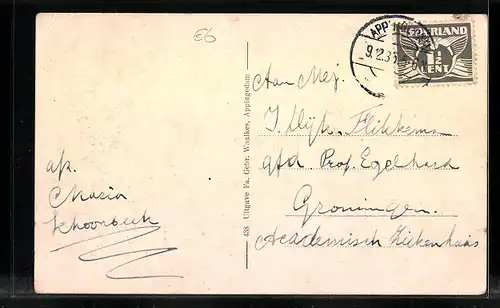 €6
APP
9.12.3
NEDERLAND
1½
CENT
Aan Mej.
Flikkema
afd Prof. Egelhard
Groningen.
Academisch Ziekenhuis
438 Uitgave Fa. Gebr. Waalkes, Appingedam
afz.
Maria
Schoonbeek